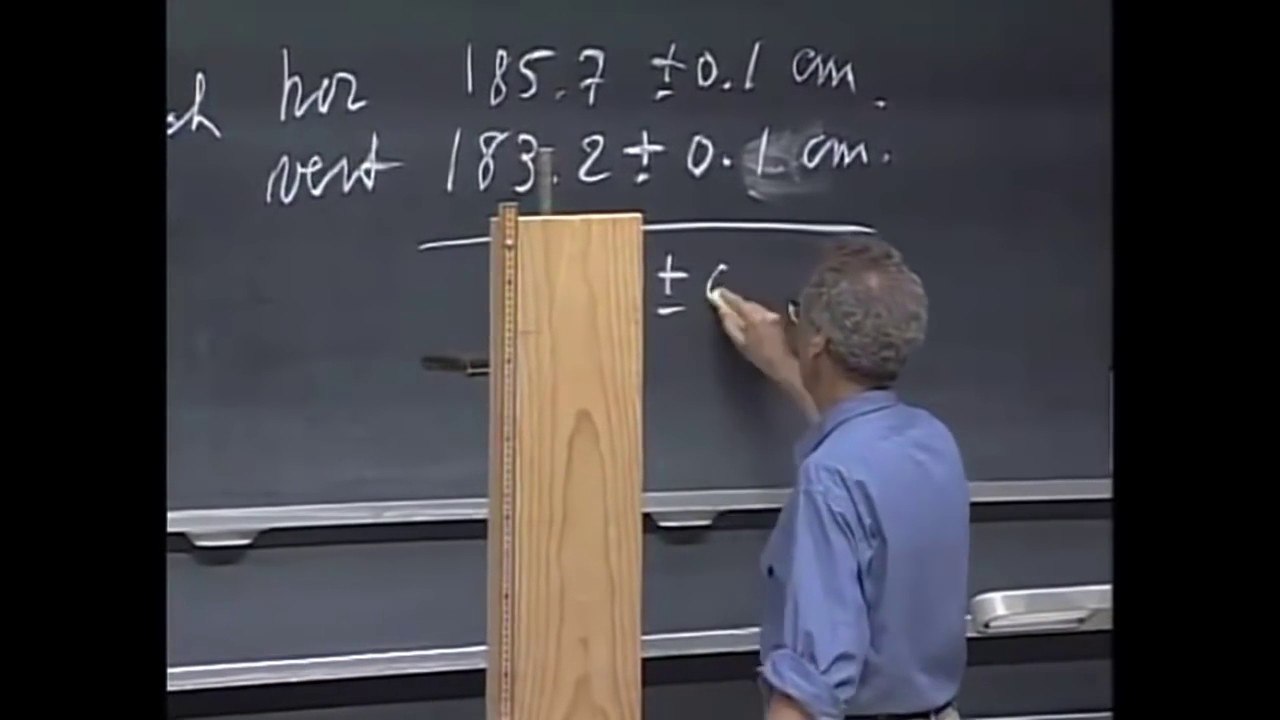 hor 185.7 ±0.1 cm.
vert 183.2 ± 0.1 cm.
±